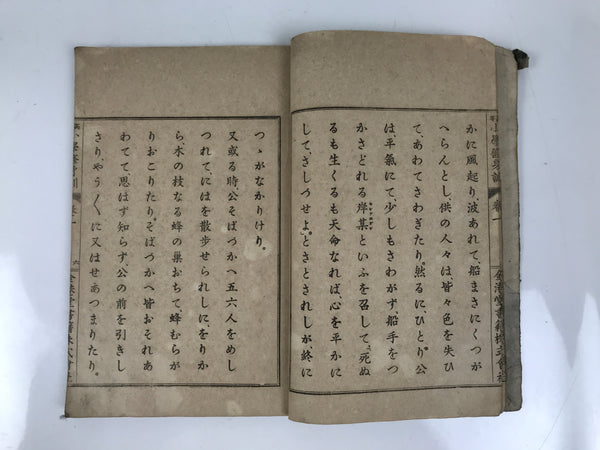 かに風起り、波あれて、船まさにくつが
へらんとし、供の人々は、皆々色を失ひ
て、あわてさわぎたり。然るに、ひとり公
は、平氣にて、少しもさわがず、船手をつ
かさどれる岸某といふを召して、「死ぬ
るも生くるも天命なれば、心を平かに
して、ぎしつせよ。」とさとされしが、終に
つゝがなかりけり。
又或る時、公そばづかへ五六人をめし
つれて、にはを散歩せられしに、をりか
ら、木の枝なる蜂の巣おちて蜂むらが
りおこりたり。そばづかへ皆おそれあ
わてて、思はず知らず、公の前を引きし
さり、やう〱に又はせあつまりたり。
卷一
金港堂書籍株式會社
卷一
六